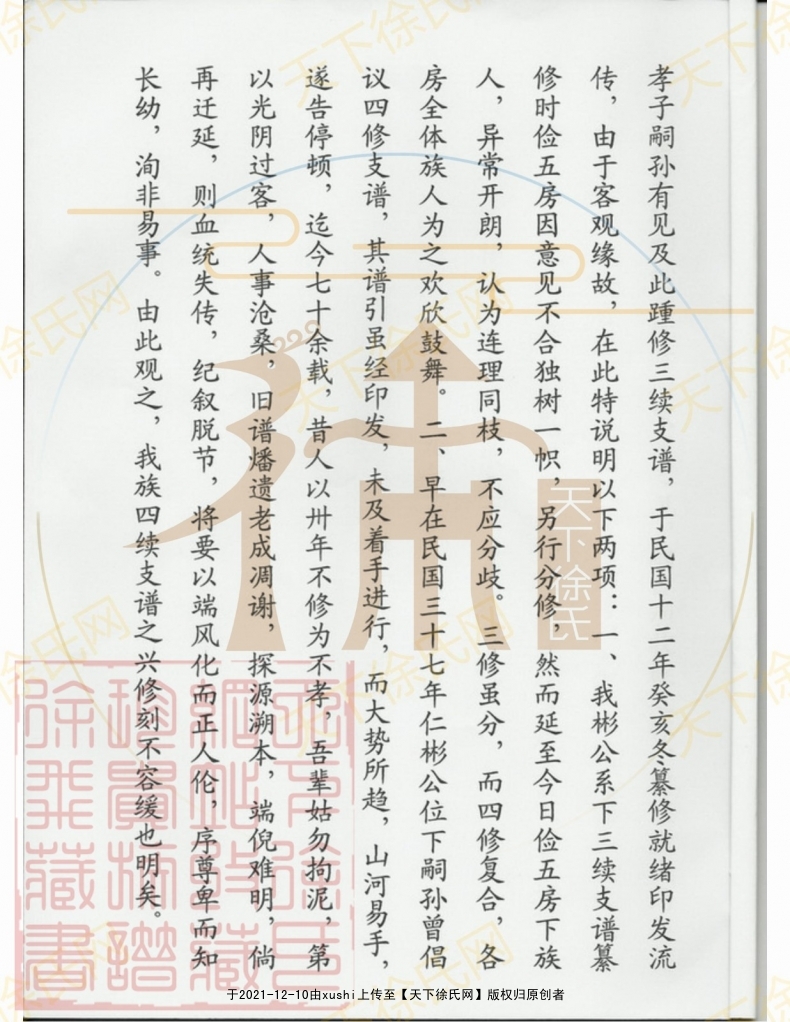 孝子嗣孙有见及此踵修三续支谱，于民国十二年癸亥冬纂修就绪印发流
传，由于客观缘故，在此特说明以下两项：一、我彬公系下三续支谱纂
修时俭五房因意见不合独树一帜，另行分修，然而延至今日俭五房下族
人，异常开朗，认为连理同枝，不应分歧。三修虽分，而四修复合，各
房全体族人为之欢欣鼓舞。二、早在民国三十七年仁彬公位下嗣孙曾倡
议四修支谱，其谱引虽经印发，未及着手进行，而大势所趋，山河易手，
遂告停顿，迄今七十余载，昔人以卅年不修为不孝，吾辈姑勿拘泥，第
以光阴过客，人事沧桑，旧谱燔遗老成凋谢，探源溯本，端倪难明，倘
再迁延，则血统失传，纪叙脱节，将要以端风化而正人伦，序尊卑而知
长幼，洵非易事。由此观之，我族四续支谱之兴修刻不容缓也明矣。
天下徐氏
天下徐氏网
于2021-12-10由xushi上传至【天下徐氏网】版权归原创者